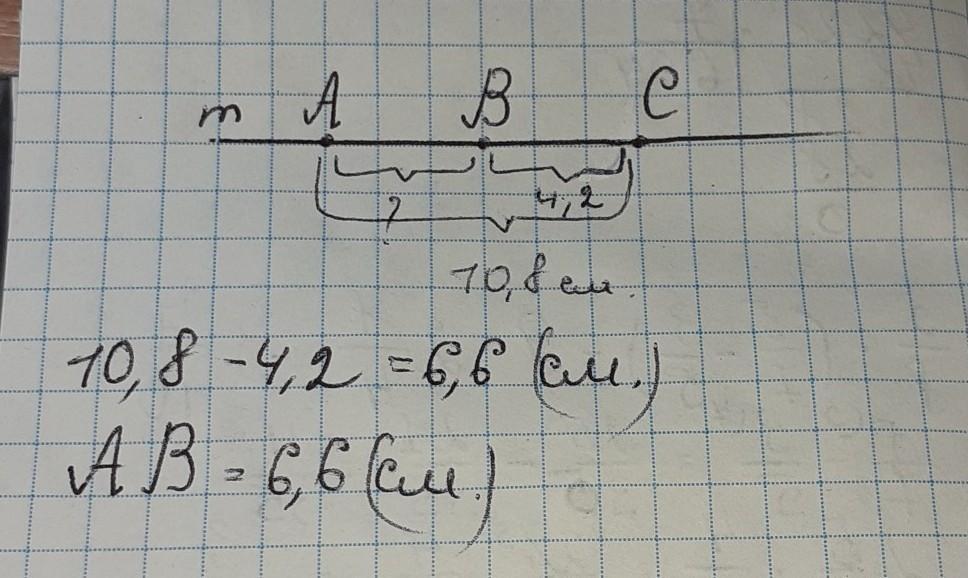 m A B C
? 4,2
10,8 см.
10,8 - 4,2 = 6,6 (см.)
AB = 6,6 (см.)